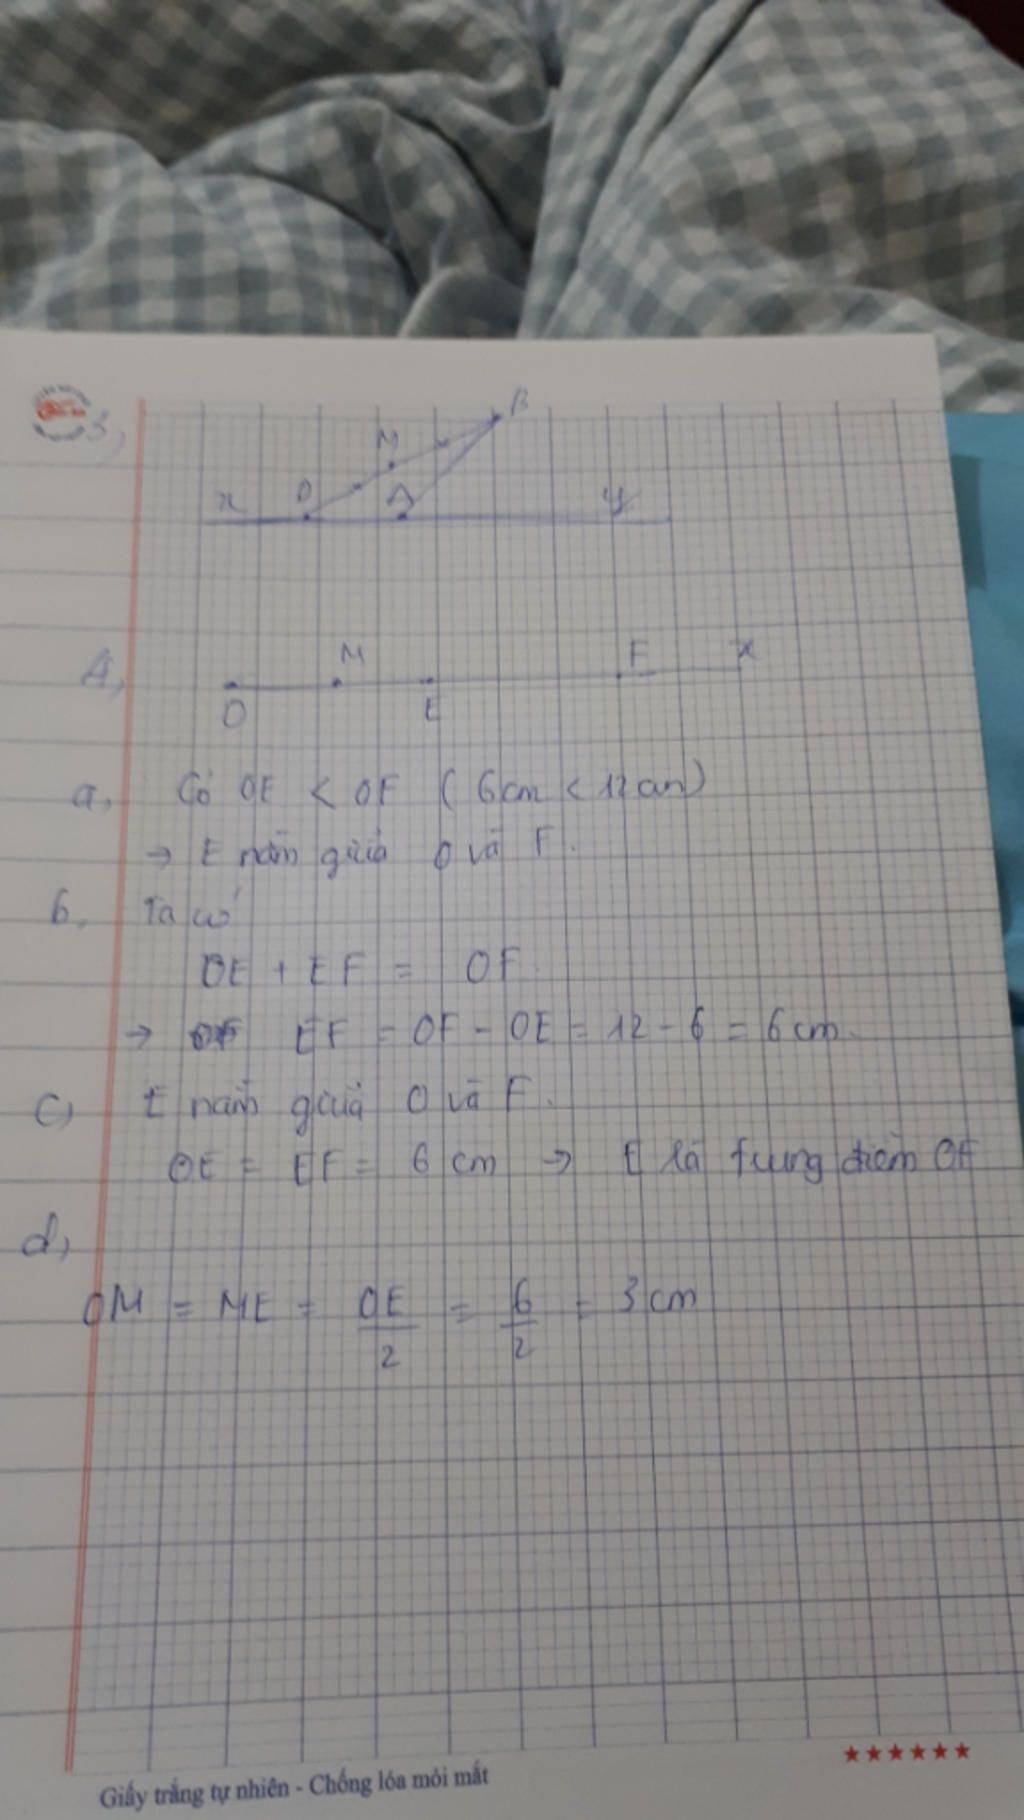 3,
B
M
x O A y
4, M F x
O E
a, Có OE < OF ( 6cm < 12cm)
→ E nằm giữa O và F.
b, Ta có
OE + EF = OF.
→ EF = OF - OE = 12 - 6 = 6 cm.
c) E nằm giữa O và F.
OE = EF = 6 cm → E là trung điểm OF
d,
OM = ME = OE/2 = 6/2 = 3 cm
Giấy trắng tự nhiên - Chống lóa mỏi mắt